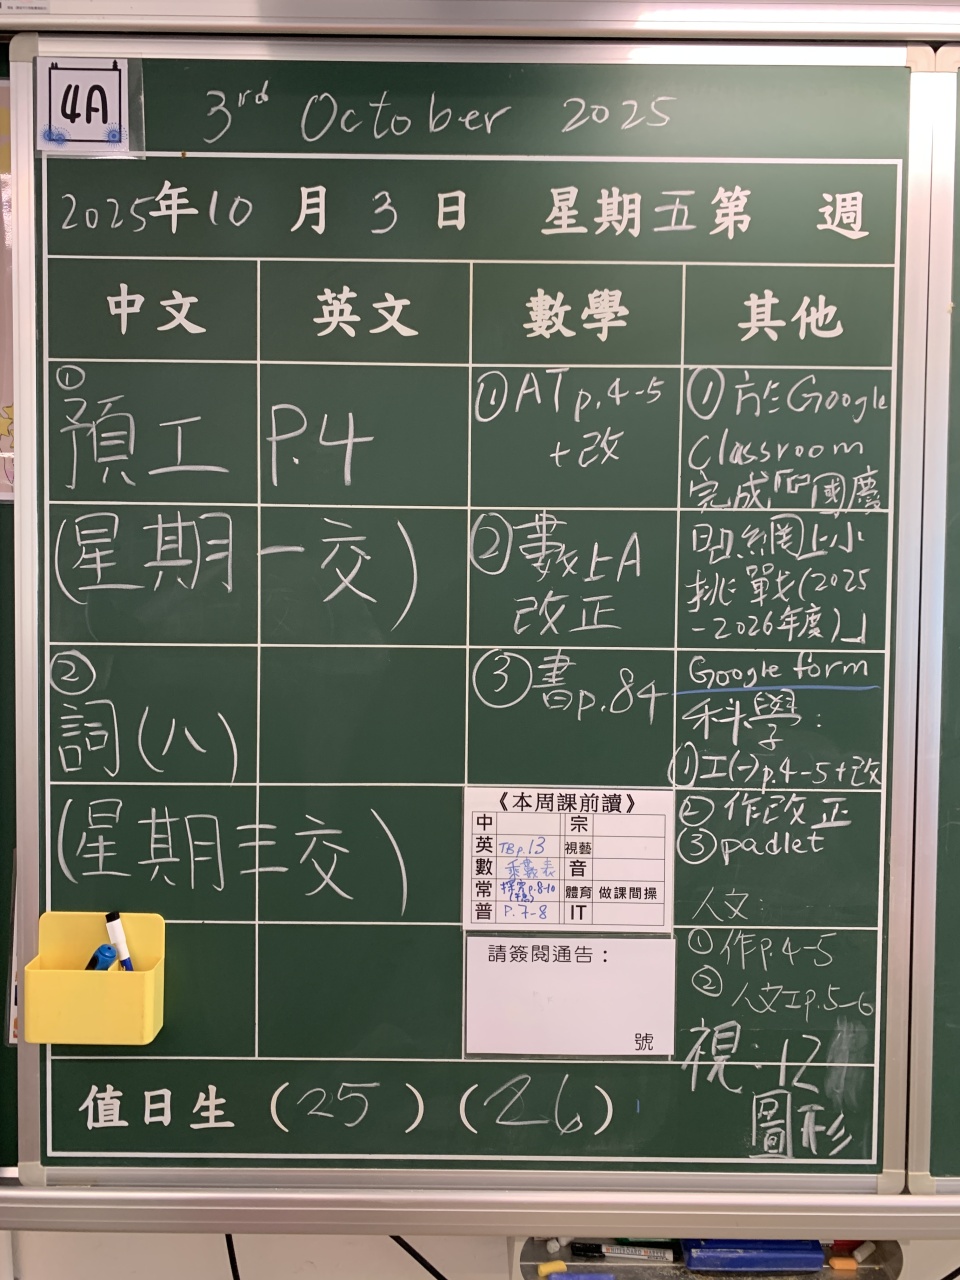 4A
3rd October 2025
2025年10月3日 星期五第 週
中文 英文 數學 其他
①
預工 P.4
(星期一交)
②
詞(八)
(星期三交)
①AT p.4-5
+改
②數上A
改正
③書p.84
①於Google
Classroom
完成「國慶
網上小
挑戰(2025
-2026年度)」
Google form
科學:
①工(一)p.4-5+改
②作改正
③padlet
人文:
①作P.4-5
②人文工p.5-6
視:12
圖形
《本周課前讀》
中 宗
英 TB p.13 視藝
數 乘數表 音
常 探究p.8-10 體育 做課間操
普 P.7-8 IT
請簽閱通告:
號
值日生(25)(26)
WHITEBOARD MARKER